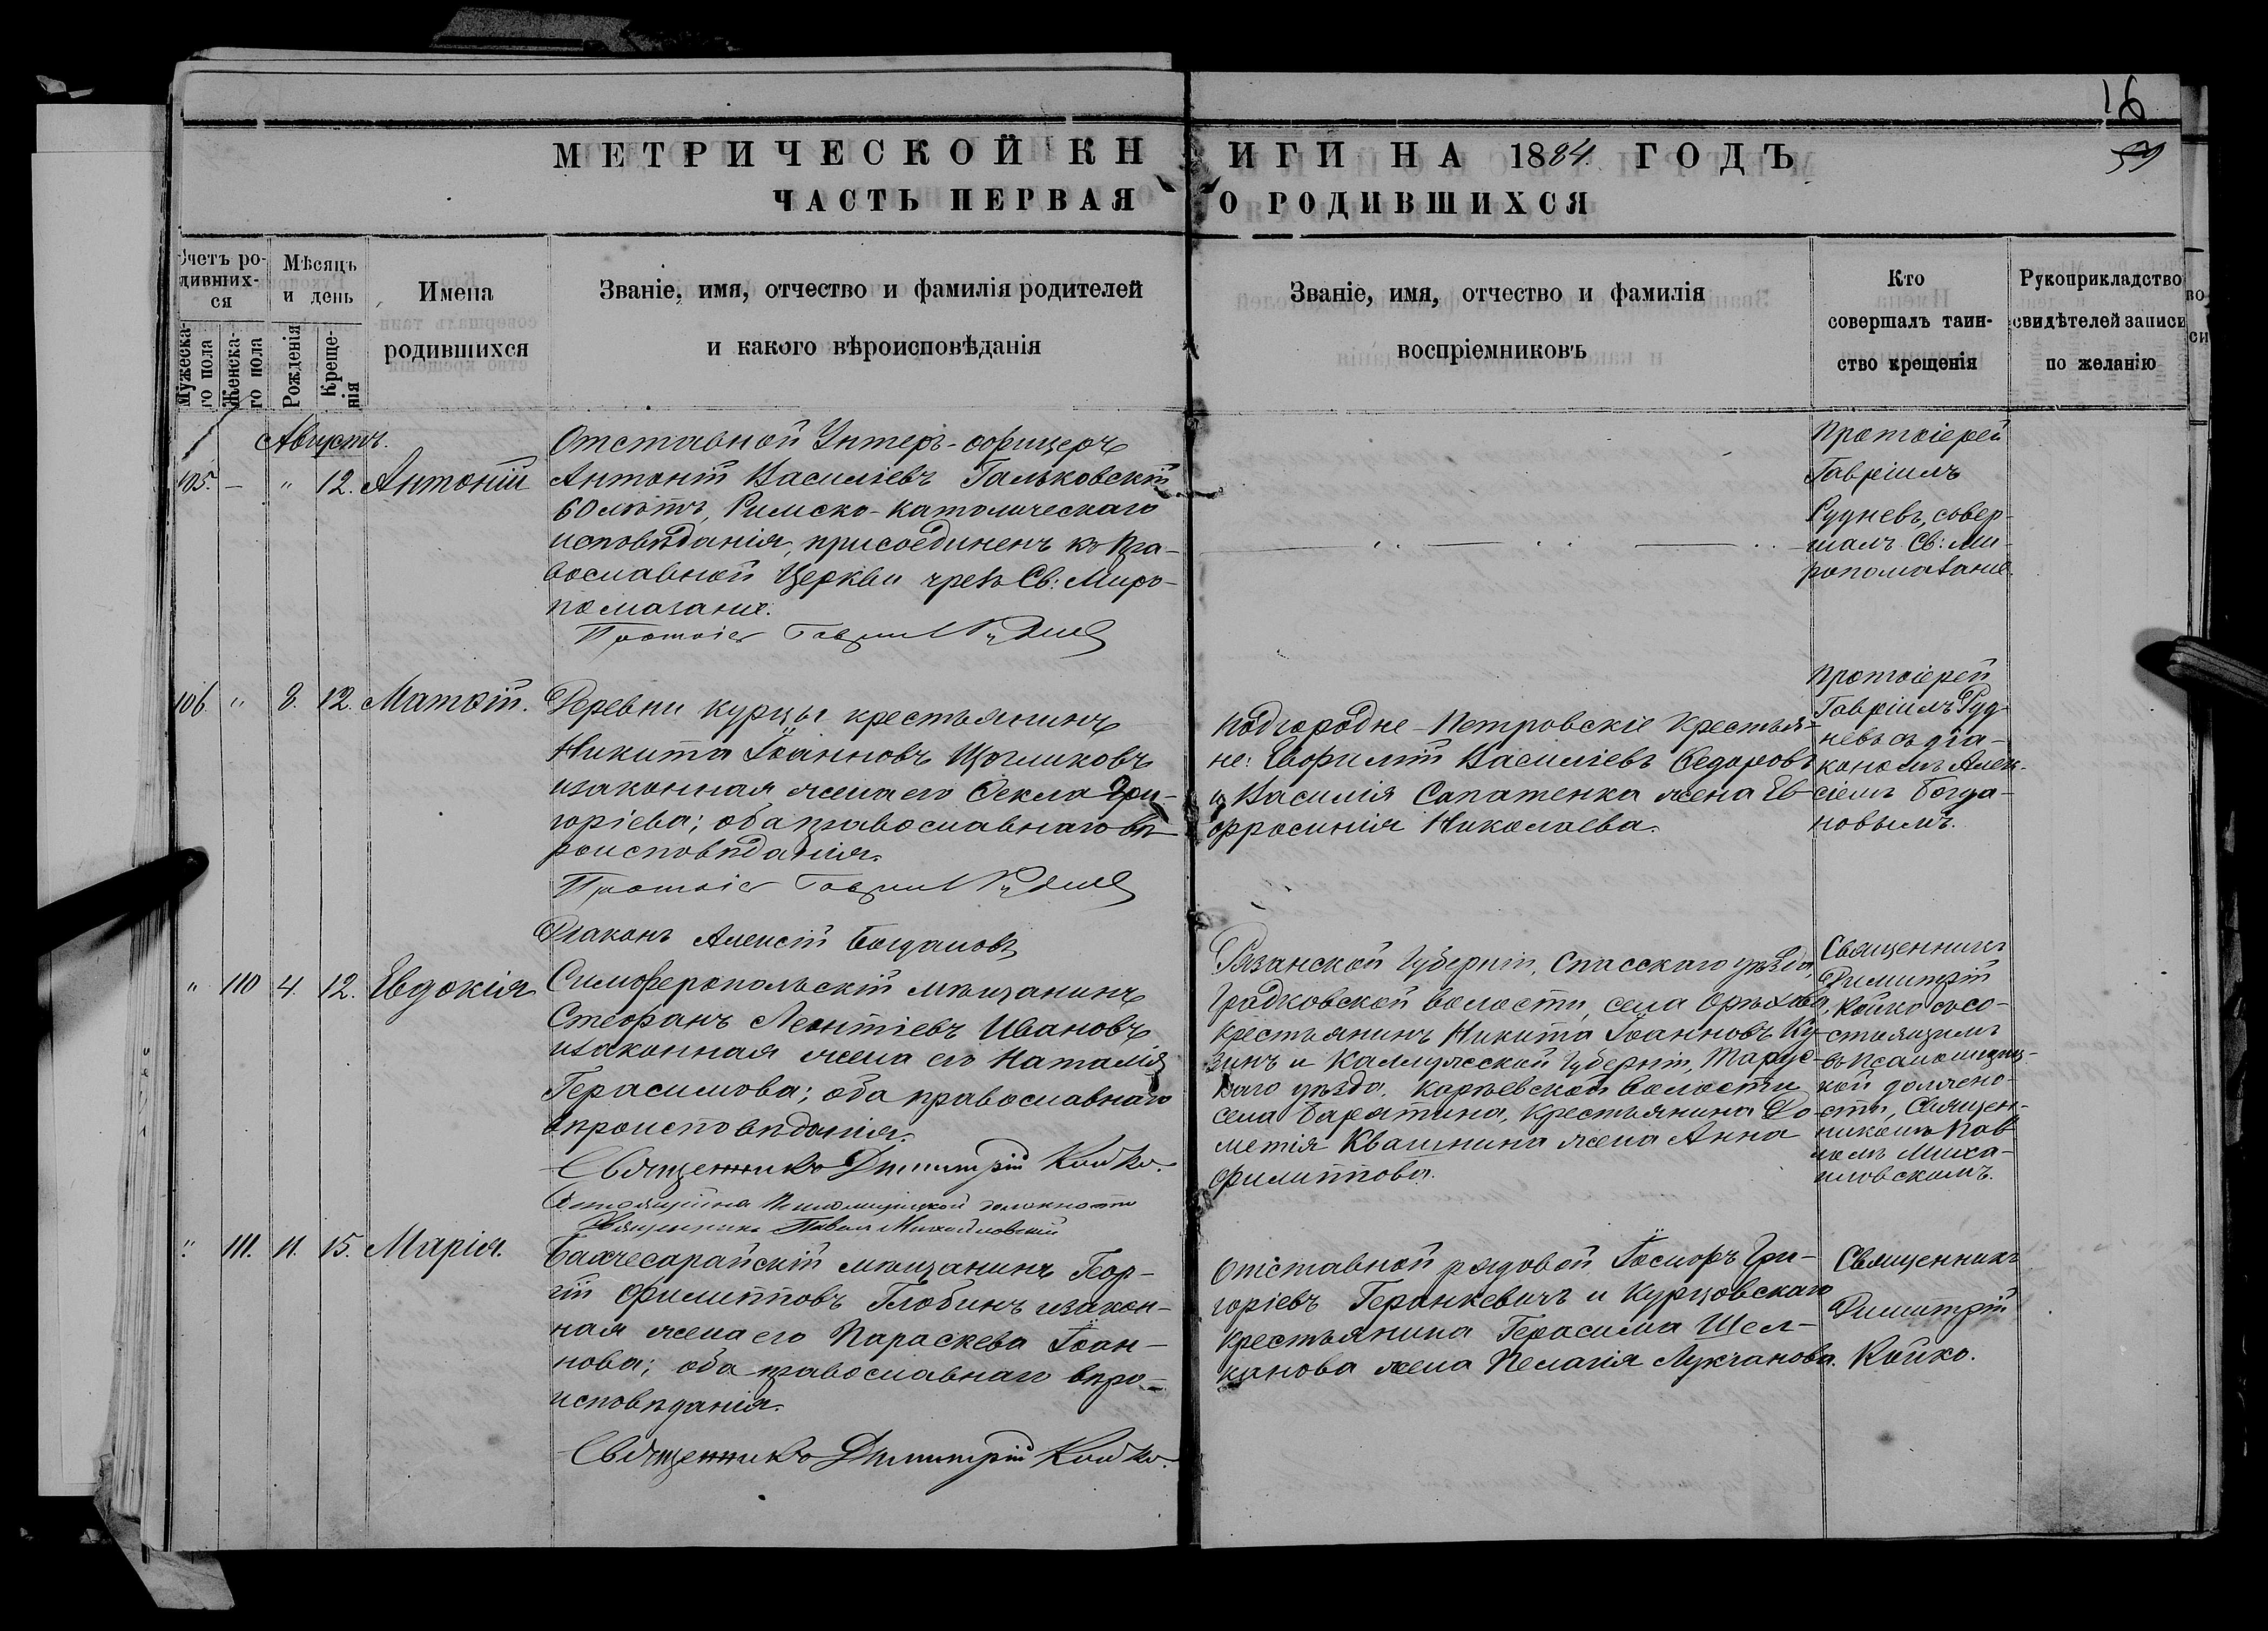 16
59
МЕТРИЧЕСКОЙ КНИГИ НА 1884. ГОДЪ
ЧАСТЬ ПЕРВАЯ О РОДИВШИХСЯ
Счетъ ро-
дивших-
ся
Мужеска-
го пола
Женска-
го пола
Мѣсяцъ
и день
Рожденія
Креще-
нія
Имена
родившихся
Званіе, имя, отчество и фамилія родителей
и какого вѣроисповѣданія
Званіе, имя, отчество и фамилія
воспріемниковъ
Кто
совершалъ таин-
ство крещенія
Рукоприкладство
свидѣтелей записи
по желанію
Августъ.
105. — " 12. Антоній
Отставной Унтеръ-офицеръ
Антоній Василіевъ Гальковскій
60 лѣтъ, Римско-Католическаго
исповѣданія, присоединенъ къ Пра-
вославной Церкви чрезъ Св: Миро-
помазаніе.
Протоіер Гавриил Руднев
Протоіерей
Гавріилъ
Рудневъ, совер-
шалъ Св: Ми-
ропомазаніе.
106. " 8. 12. Матѳій.
Деревни Курцы крестьянинъ
Никита Іоанновъ Щегликовъ
изаконная жена его Ѳекла Гри-
горіева; оба православнаго вѣ-
роисповѣданія.
Протоіер Гавриил Руднев
Діаконъ Алексій Богдановъ
Подгородне-Петровскіе Крестья-
не: Ѳеофилій Василіевъ Ѳедоровъ
и Василія Сапатенка жена Ев-
фросинія Николаева.
Протоіерей
Гавріилъ Руд-
невъ съ діа-
кономъ Алек-
сіемъ Богда-
новымъ.
" 110 4. 12. Евдокія
Симферопольскій мѣщанинъ
Стефанъ Леонтіевъ Ивановъ
изаконная жена его Наталія
Герасимова; оба православнаго
вѣроисповѣданія.
Священникъ Димитрій Койко.
Состоящій на Псаломщицкой должности
Священникъ Павелъ Михайловскій
Рязанской Губерніи, Спасскаго уѣзда,
Градковской волости, села Орѣхова,
крестьянинъ Никита Іоанновъ Ку-
зинъ и Каллужской Губерніи, Тарус-
каго уѣзда, Карѣевской волости
села Барятина, крестьянина До-
метія Квашнина жена Анна
Филиппова.
Священникъ
Димитрій
Койко съ со-
стоящимъ
въ Псаломщиц-
кой должно-
сти, Священ-
никомъ Пав-
ломъ Миха-
иловскимъ.
" 111. 11. 15. Марія.
Бахчесарайскій мѣщанинъ Геор-
гій Филипповъ Глобинъ изакон-
ная жена его Параскева Іоан-
нова; оба православнаго вѣро-
исповѣданія.
Священникъ Димитрій Койко.
Отставной рядовой Іосифъ Гри-
горіевъ Геранкевичъ и Курцовскаго
Крестьянина Герасима Щел-
канова жена Пелагія Лукіанова.
Священникъ
Димитрій
Койко.